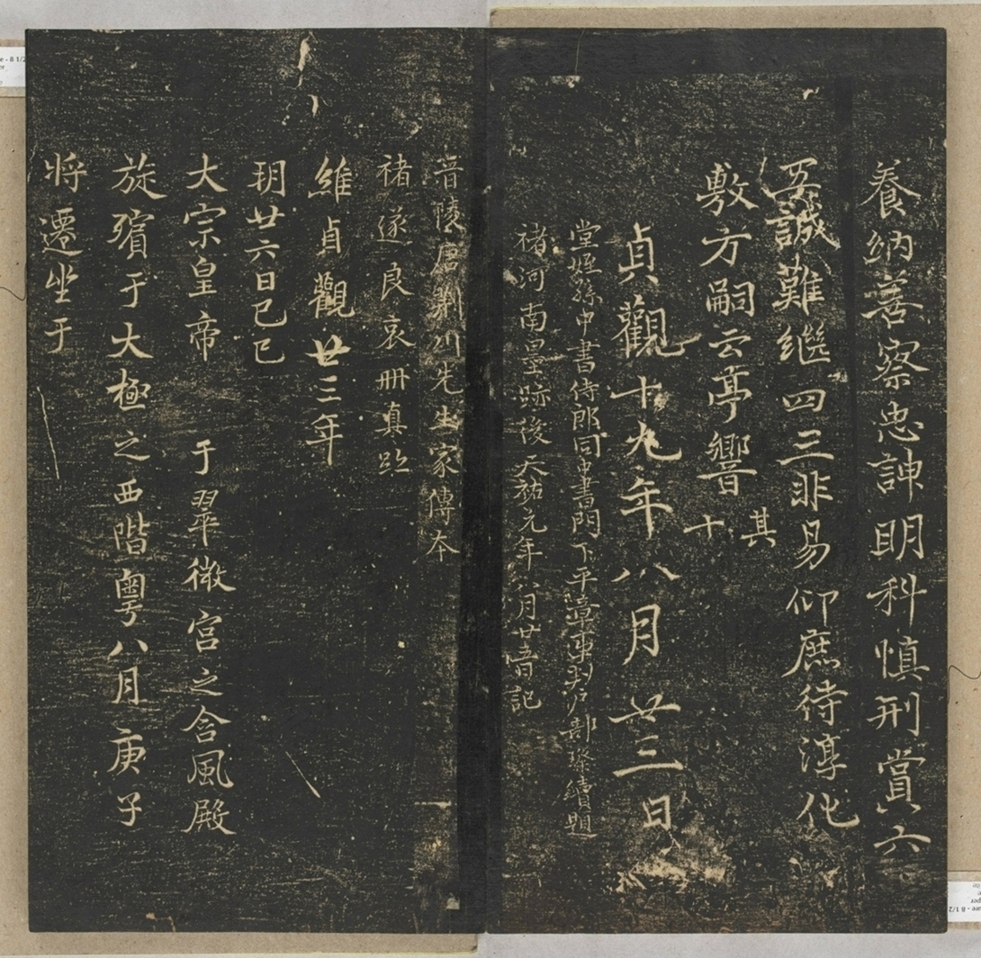 養納善察忠諫明科慎刑賞六
五誠難繼四三非易仰庶待淳化
敷方嗣云亭響 其十
貞觀十九年八月廿三日
堂姪孫中書侍郎同中書門下平章事判戶部 題
褚河南墨跡後天祐元年八月廿 日記
晋陵唐荆川先生家傳本
褚遂良哀冊真跡
維貞觀廿三年
玥廿六日己巳
大宗皇帝 于翠微宮之含風殿
旋殯于大極之西階粵八月庚子
将遷坐于